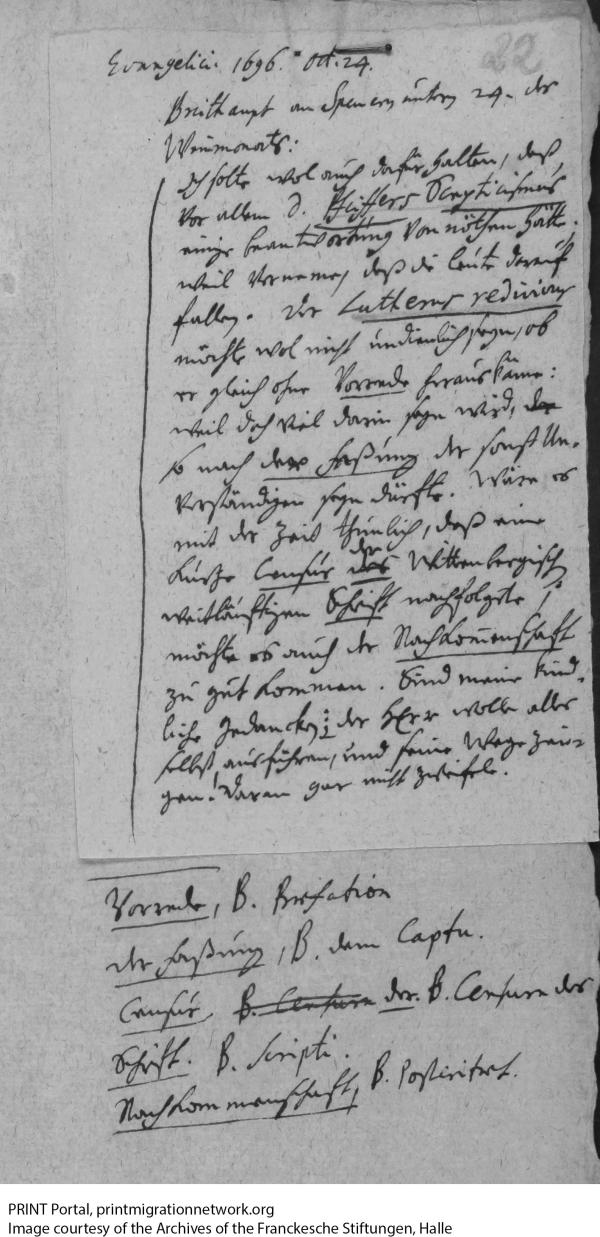 22
Evangelici. 1696. Oct. 24.
Breithaupt an Spenern unterm 24. des
Weinmonats:
Ich solte wol auch dafür halten, daß
vor allem D. Pfeiffers Scepticismus
einige beantwortung von nöthen hätte.
weil vernemen, daß die leute darauf
fallen. Der Lutherus redivivus
möchte wol nicht undienlich seyn, ob
er gleich ohne Vorrede herauskäme:
weil doch viel darin seyn wird,
so nach der Faßung der sonst Un-
verständigen seyn dürfte. Wäre es
mit der Zeit thunlich, daß eine
kurtze Censur der Wittenbergisch
weitläuftigen Schrift nachfolgete,
möchte es auch der Nachkommenschaft
zu gut kommen. Sind meine kind-
liche Gedancken: der HErr wolle alles
selbst ausführen, und seine Wege zei-
gen! Daran gar nicht zweifele.
Vorrede, B. Præfation
der Faßung, B. dem Captu.
Censur, B. Censura der. B. Censura des
Schrift. B. Scripti.
Nachkommenschaft, B. Posteritæt.
PRINT Portal, printmigrationnetwork.org
Image courtesy of the Archives of the Franckesche Stiftungen, Halle